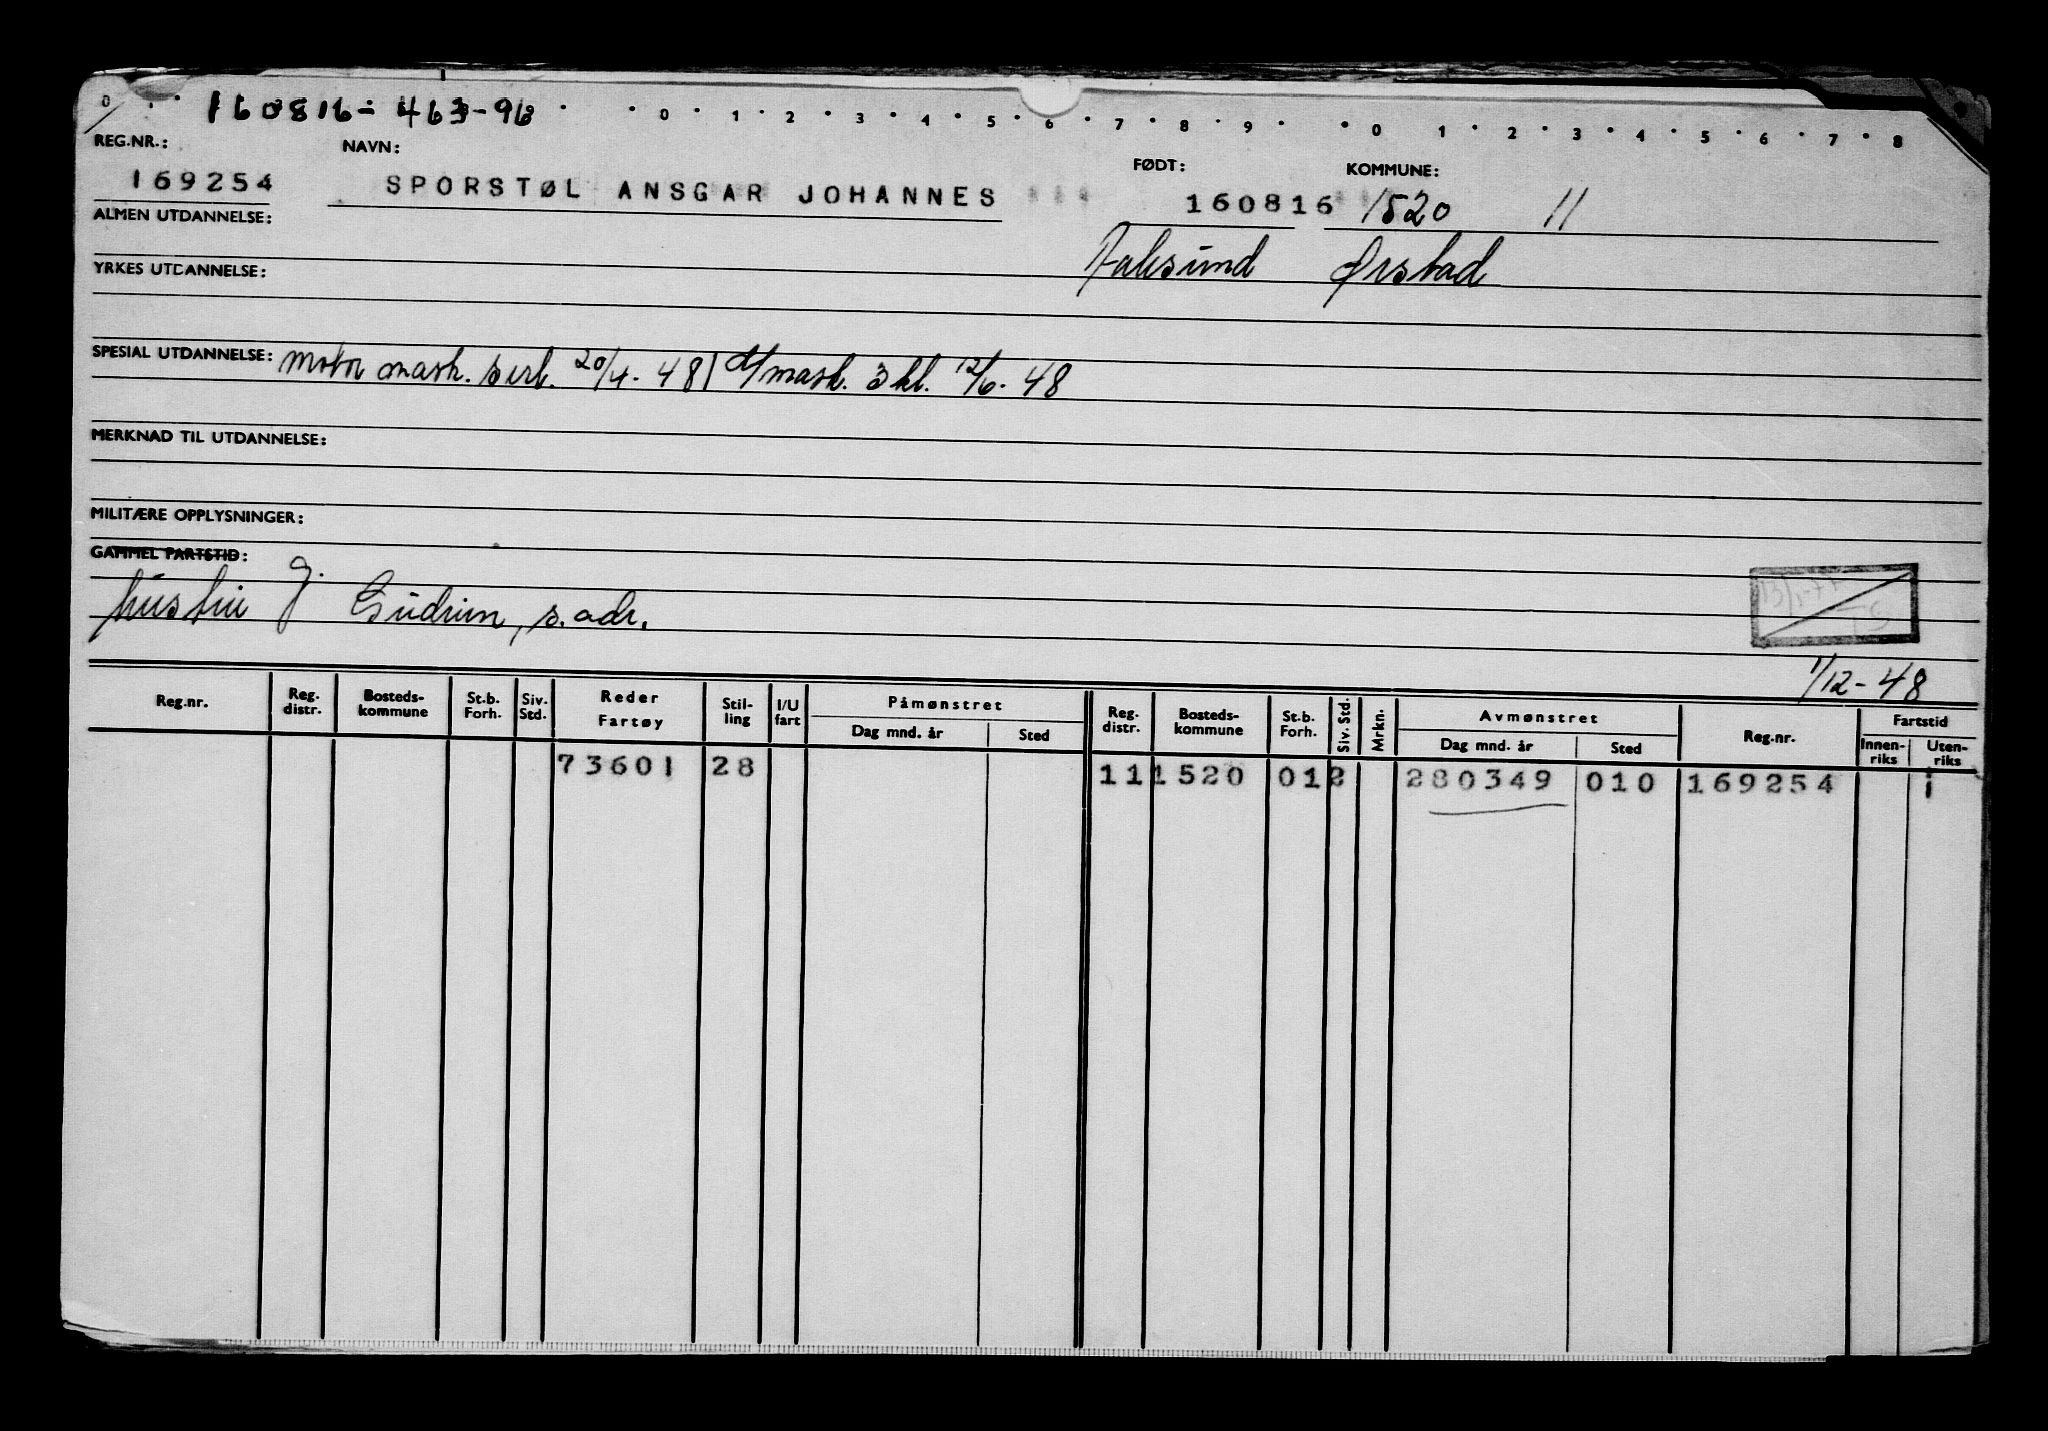 0 160816-46396 0 1 2 3 4 5 6 7 8 9 0 1 2 3 4 5 6 7 8
REG.NR.: NAVN: FØDT: KOMMUNE:
169254 SPORSTØL ANSGAR JOHANNES 160816 1520 11
ALMEN UTDANNELSE:
Aalesund Ørstad
YRKES UTDANNELSE:
SPESIAL UTDANNELSE: motor mask. sert. 20/4-48 / mask. 3 kl. 12/6-48
MERKNAD TIL UTDANNELSE:
MILITÆRE OPPLYSNINGER:
GAMMEL FARTSTID:
hustru g. Gudrun, s. adr.
1/12-48
Reg.nr. Reg. distr. Bosteds-kommune St.b. Forh. Siv. Std. Reder Fartøy Stil-ling I/U fart Påmønstret Reg. distr. Bosteds-kommune St.b. Forh. Siv. Std. Mrkn. Avmønstret Reg.nr. Fartstid
Dag mnd. år Sted Dag mnd. år Sted Innen-riks Uten-riks
73601 28 11 1520 01 2 280349 010 169254 i